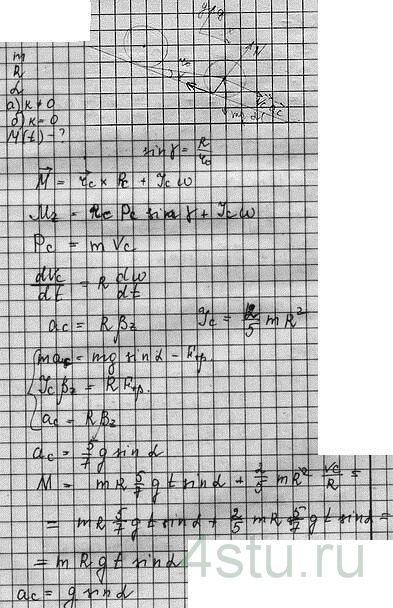 m
R
α
а) k≠0
б) k=0
M(t) - ?
y
g
N
mg
α
a_c
sin γ = R/r₀
M⃗ = r⃗_c × P_c + J_c ω
M_z = r_c P_c sin γ + J_c ω
P_c = m V_c
dV_c/dt = R dω/dt
a_c = R β_z
J_c = 2/5 m R²
m a_c = mg sin α - F_тр.
J_c β_z = R F_тр.
a_c = R β_z
a_c = 5/7 g sin α
M = m R 5/7 g t sin α + 2/5 m R² V_c/R =
= m R 5/7 g t sin α + 2/5 m R 5/7 g t sin α =
= m R g t sin α
a_c = g sin α
4stu.ru